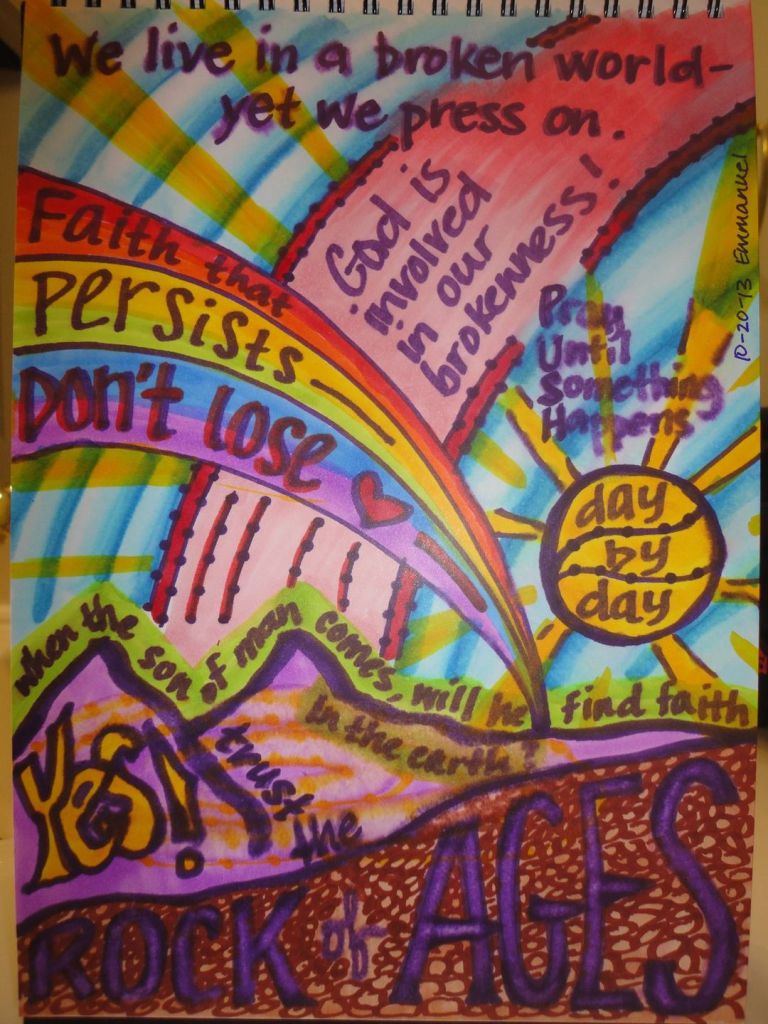 We live in a broken world-
yet we press on.
God is
involved
in our
brokenness!
10-20-13 Emmanuel
Faith that
PERSISTS
DON'T LOSE
Pray
Until
Something
Happens
day
by
day
when the son of man comes, will he find faith
in the earth?
YES!
trust
the
ROCK of AGES